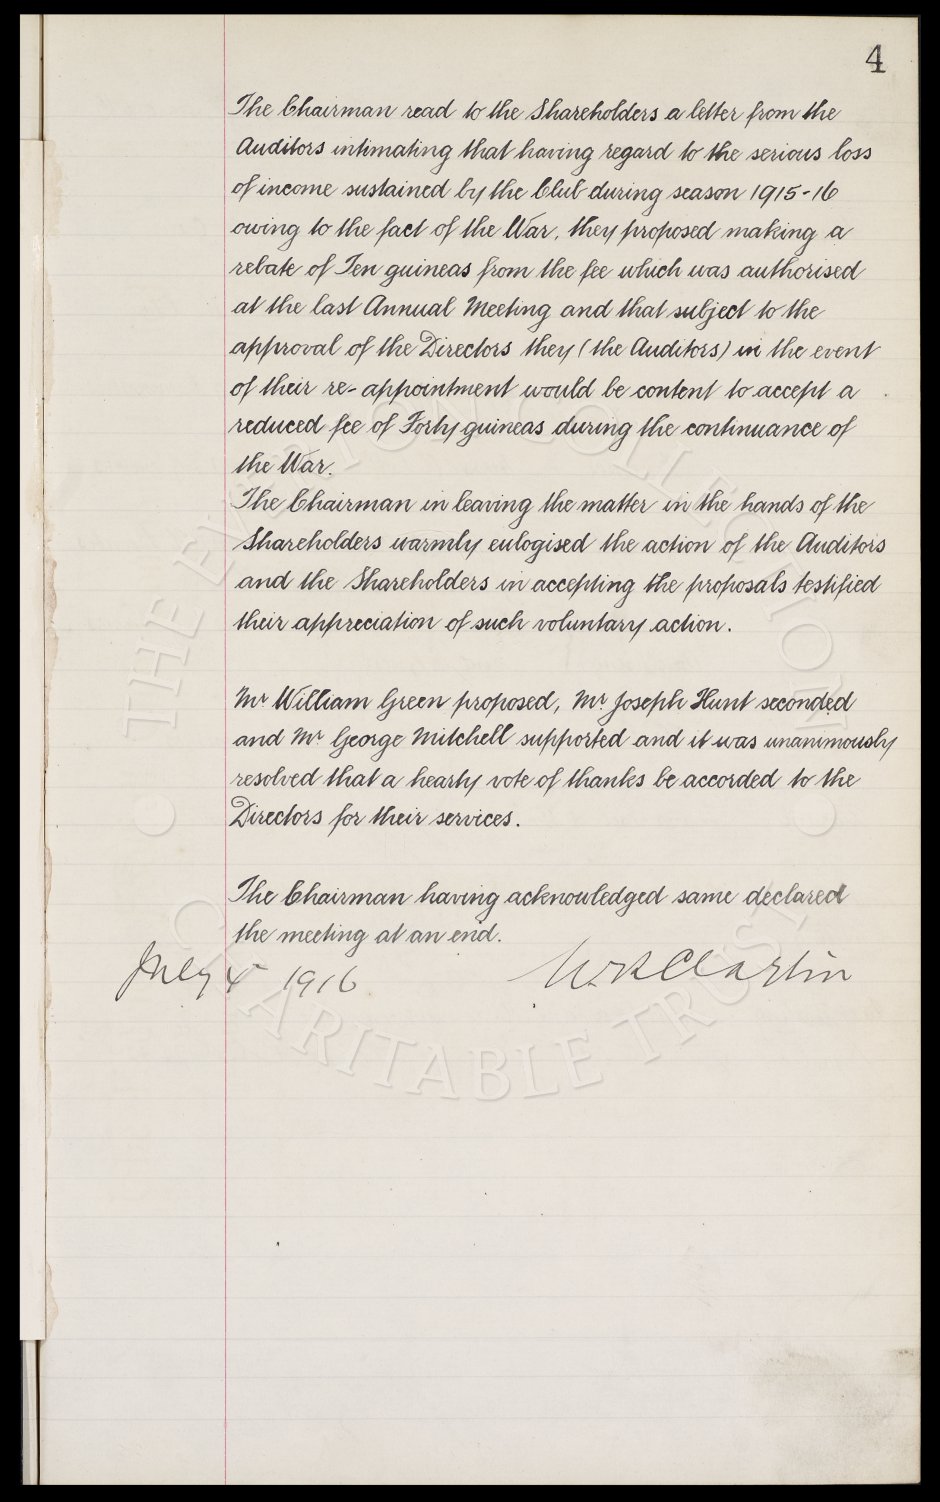 4
The Chairman read to the Shareholders a letter from the
Auditors intimating that having regard to the serious loss
of income sustained by the Club during season 1915-16
owing to the fact of the War, they proposed making a
rebate of Ten guineas from the fee which was authorised
at the last Annual Meeting and that subject to the
approval of the Directors they (the Auditors) in the event
of their re-appointment would be content to accept a
reduced fee of Forty guineas during the continuance of
the War.
The Chairman in leaving the matter in the hands of the
Shareholders warmly eulogised the action of the Auditors
and the Shareholders in accepting the proposals testified
their appreciation of such voluntary action.
Mr William Green proposed, Mr Joseph Hunt seconded
and Mr George Mitchell supported and it was unanimously
resolved that a hearty vote of thanks be accorded to the
Directors for their services.
The Chairman having acknowledged same declared
the meeting at an end.
July 4 1916
THE EVERTON COLLECTION
CHARITABLE TRUST